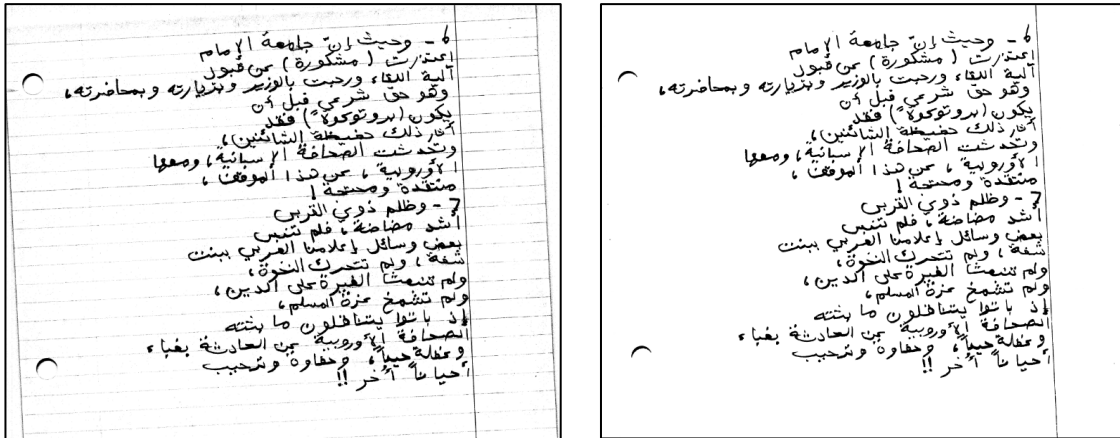 6 - وحيث إن جامعة الإمام
اعتذرت (مشكورة) عن قبول
آلية اللقاء ورحبت بالوزير وبزيارته وبمحاضرته،
وهو حق شرعي قبل أن
يكون (بروتوكولاً) فقد
أثار ذلك حفيظة الشائنين،
وتحدثت الصحافة الإسبانية، ومعها
الأوروبية، عن هذا الموقف،
منتقدة ومحتجة!
7 - وظلم ذوي القربى
أشد مضاضة، فلم تنبس
بعض وسائل إعلامنا العربي ببنت
شفة، ولم تتحرك النخوة،
ولم تنبعث الغيرة على الدين،
ولم تشمخ عزة المسلم،
إذ باتوا يتناقلون ما بثته
الصحافة الأوروبية عن الحادثة بغباء
وغفلة حيناً، وحفاوة وترحيب
أحياناً أُخر !!
6 - وحيث إن جامعة الإمام
اعتذرت (مشكورة) عن قبول
آلية اللقاء ورحبت بالوزير وبزيارته وبمحاضرته،
وهو حق شرعي قبل أن
يكون (بروتوكولاً) فقد
أثار ذلك حفيظة الشائنين،
وتحدثت الصحافة الإسبانية، ومعها
الأوروبية، عن هذا الموقف،
منتقدة ومحتجة!
7 - وظلم ذوي القربى
أشد مضاضة، فلم تنبس
بعض وسائل إعلامنا العربي ببنت
شفة، ولم تتحرك النخوة،
ولم تنبعث الغيرة على الدين،
ولم تشمخ عزة المسلم،
إذ باتوا يتناقلون ما بثته
الصحافة الأوروبية عن الحادثة بغباء
وغفلة حيناً، وحفاوة وترحيب
أحياناً أُخر !!